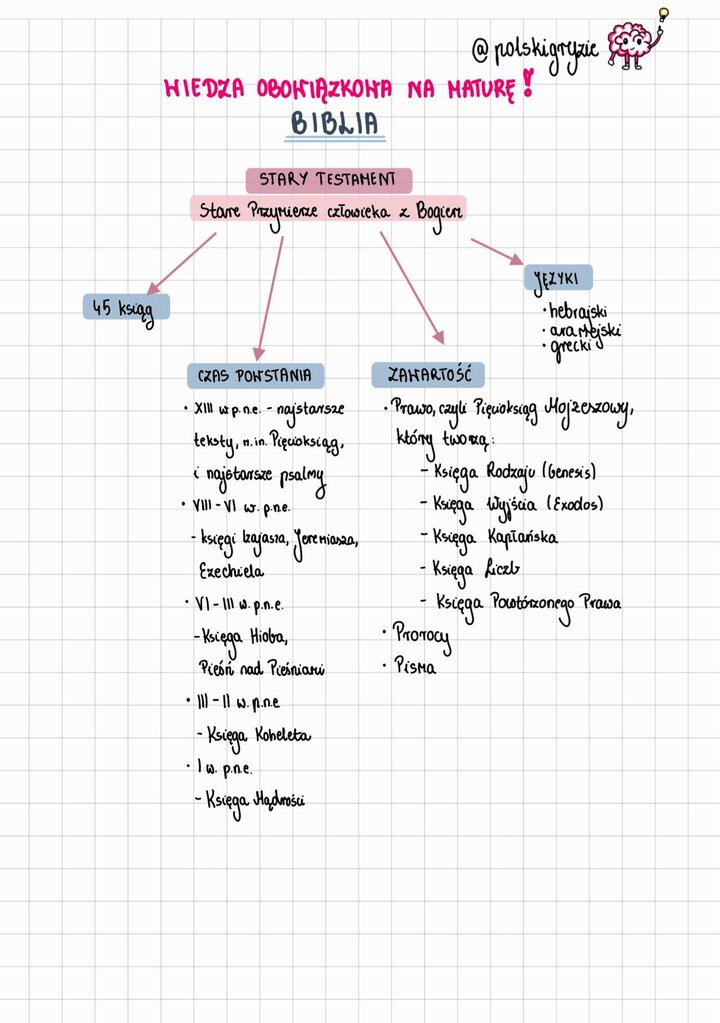 @polskigryzie
WIEDZA OBOWIĄZKOWA NA MATURĘ!
BIBLIA
STARY TESTAMENT
Stare Przymierze człowieka z Bogiem
45 ksiąg
JĘZYKI
• hebrajski
• aramejski
• grecki
CZAS POWSTANIA
• XIII w p.n.e. - najstarsze
teksty, m.in. Pięcioksiąg,
i najstarsze psalmy
• VIII - VI w. p.n.e.
- księgi Izajasza, Jeremiasza,
Ezechiela
• VI - III w. p.n.e.
- Księga Hioba,
Pieśń nad Pieśniami
• III - II w. p.n.e
- Księga Koheleta
• I w. p.n.e.
- Księga Mądrości
ZAWARTOŚĆ
• Prawo, czyli Pięcioksiąg Mojżeszowy,
który tworzą:
- Księga Rodzaju (Genesis)
- Księga Wyjścia (Exodos)
- Księga Kapłańska
- Księga Liczb
- Księga Powtórzonego Prawa
• Prorocy
• Pisma